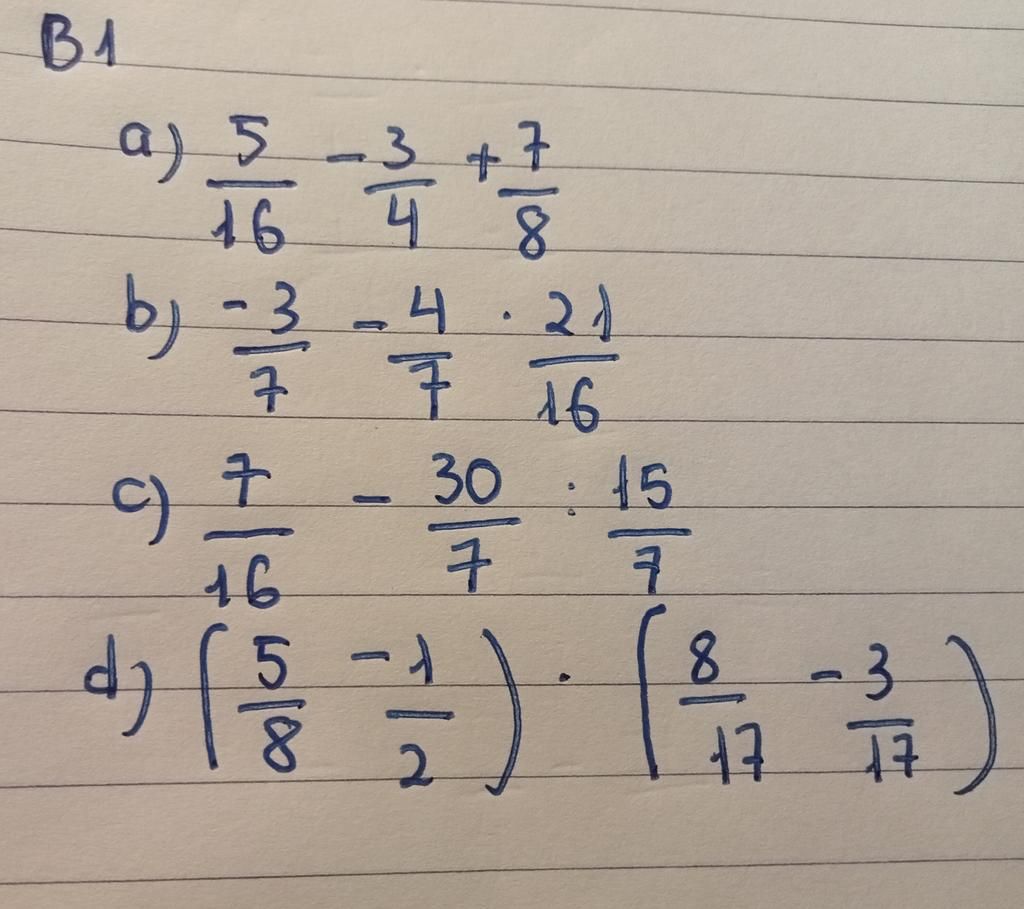 B1
a) 5/16 - 3/4 + 7/8
b) -3/7 - 4/7 · 21/16
c) 7/16 - 30/7 : 15/7
d) (5/8 - 1/2) · (8/17 - 3/17)